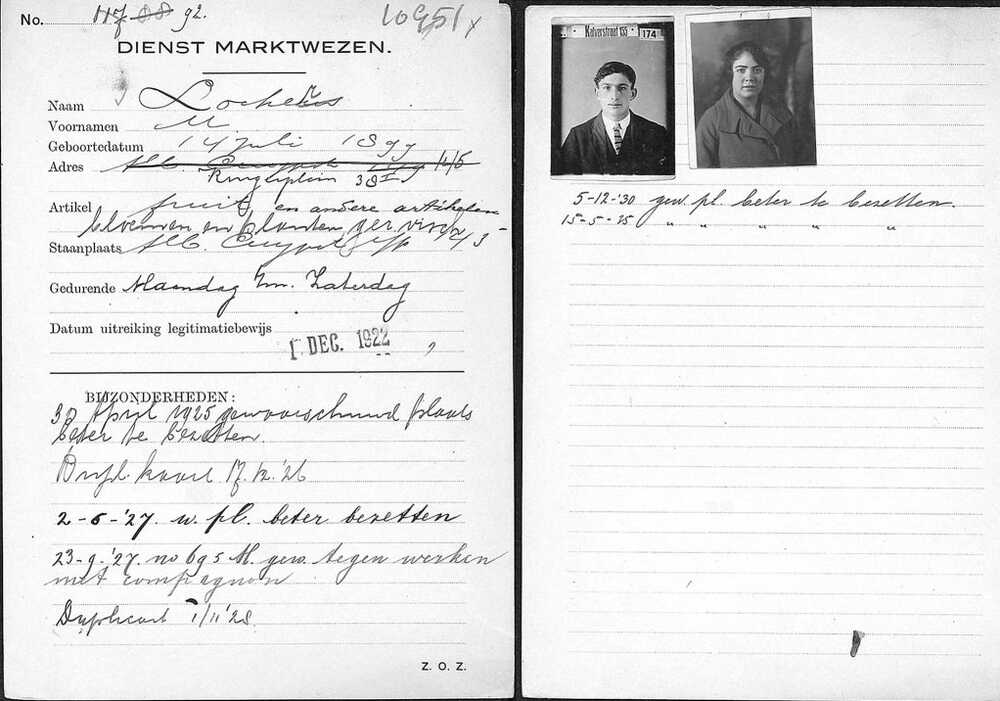 No. 117 92.
10951 x
DIENST MARKTWEZEN.
Naam Lochetus
Voornamen M
Geboortedatum 14 Juli 1899
Adres Alb. Cuypst 145
38 I
Artikel fruit en andere artikelen
bloemen en planten ger visch
Staanplaats Alb. Cuypstr
Gedurende Maandag t/m. Zaterdag
Datum uitreiking legitimatiebewijs
1 DEC. 1922
BIJZONDERHEDEN:
30 April 1925 gewaarschuwd plaats
beter te bezetten.
Dupl. kaart 17.12.'26
2-6-'27. w. pl. beter bezetten
23-9-'27. no 695 M. gew. tegen werken
met compagnon
Duplicaat 1/11'28.
Z. O. Z.
Kalverstraat 155 174
5-12-'30 gew. pl. beter te bezetten.
15-5-'35 " " " " "